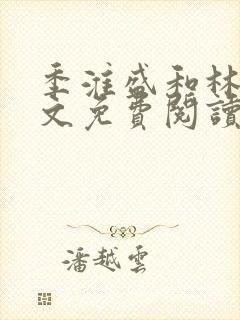 季淮盛和林
文免費閱讀
潘越雲